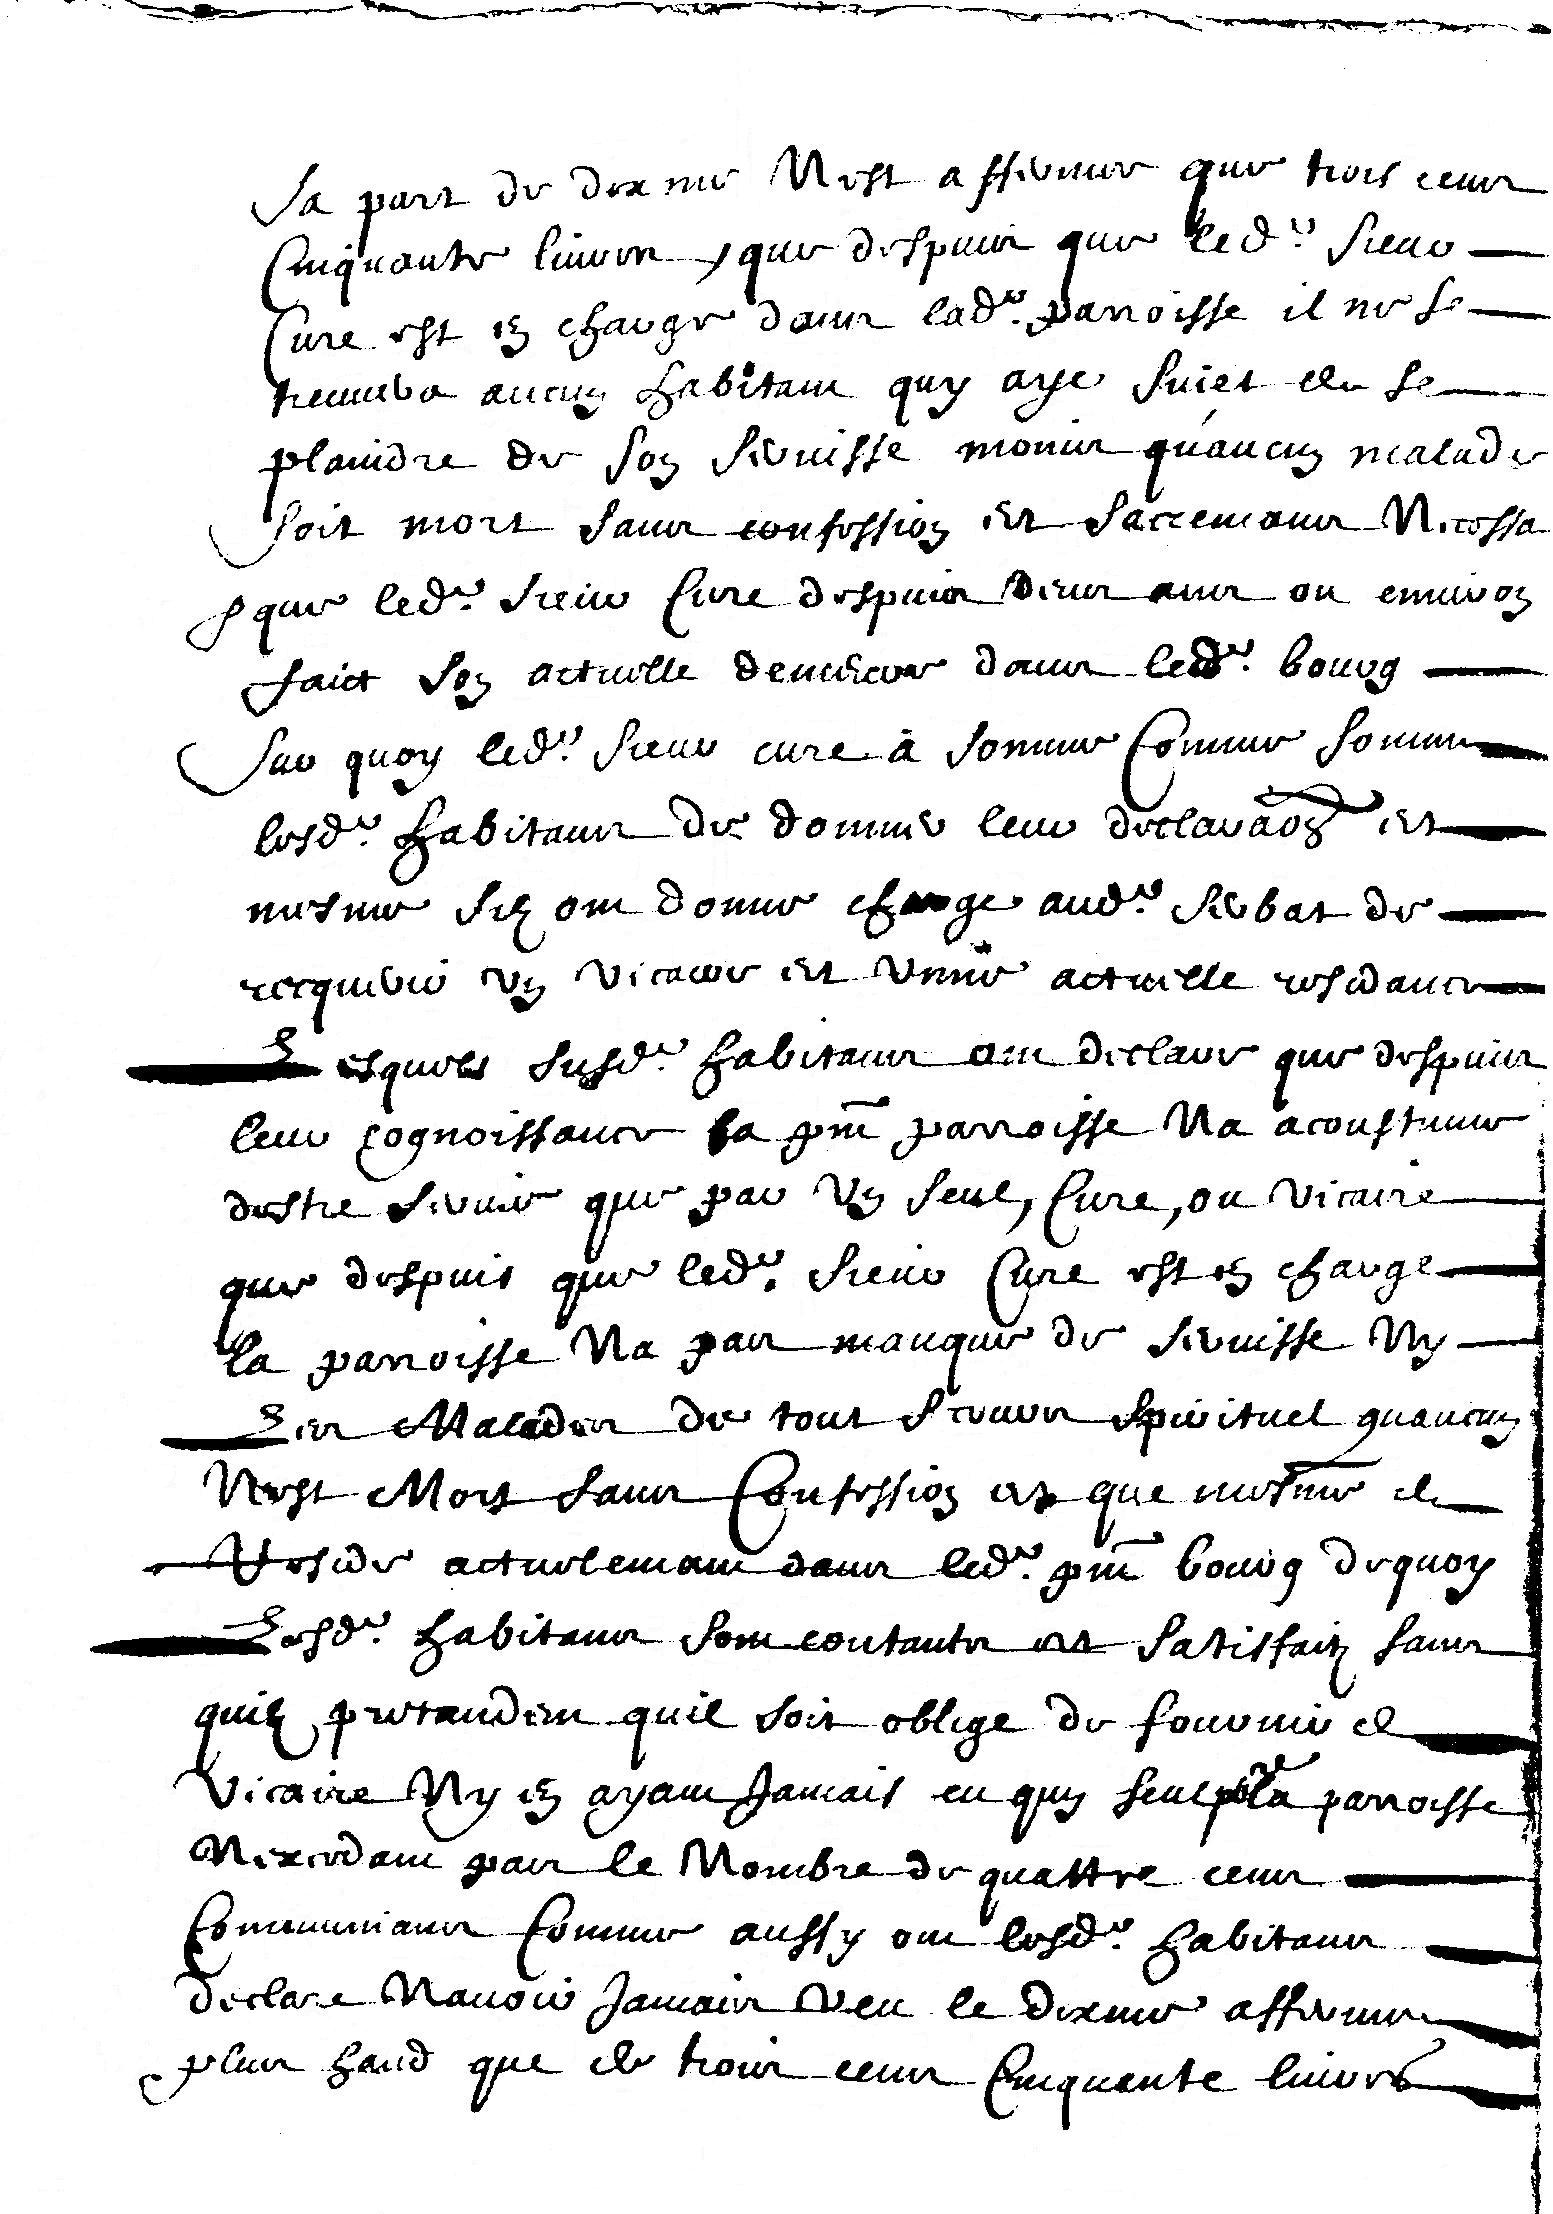 sa part de dixme n'est affermee que trois cens
Cinquante livres, que despuis que led.t sieur
Curé est en charge dans lad.te parroisse il ne se
treuuera aucun habitant quy aye suiet de se
plaindre de son seruisse moins qu'aucun malade
soit mort sans confession et sacremans Necessa
que led.t sieur Curé despuis deux ans ou enuiron
faict son actuelle demeure dans led.t bourg
sur quoy led.t sieur curé à somme Comme somme
lesd.ts habitans de donner leur declaraõn et
mesme silz ont donné charge aud.t serbat de
recquerir un vicaire et vnne actuelle residance
Lesquels susd.ts habitans ont declaré que despuis
leur cognoissance la pnt parroisse Na acoustume
destre seruie que par vn seul, Curé, ou vicaire
que despuis que led.t sieur Curé est en charge
la parroisse Na pas manque de seruisse Ny
Les Malades de tout secours spirituel quaucun
Nest Mort sans Confession et que mesme il
Reside actuelemant dans led.t pnt bourg dequoy
Lesd.ts habitans sont contants et satisfaitz sans
quilz pretandent quil soit oblige de fournir de
vicaire Ny en ayant Jamais eu qun seul la parroisse
Nexcedant pas le Nombre de quattre cens
Communians Comme aussy ont lesd.ts habitans
declare Nauoir Jamais veu le dixme afferme
plus haud que de trois cens Cinquante liures